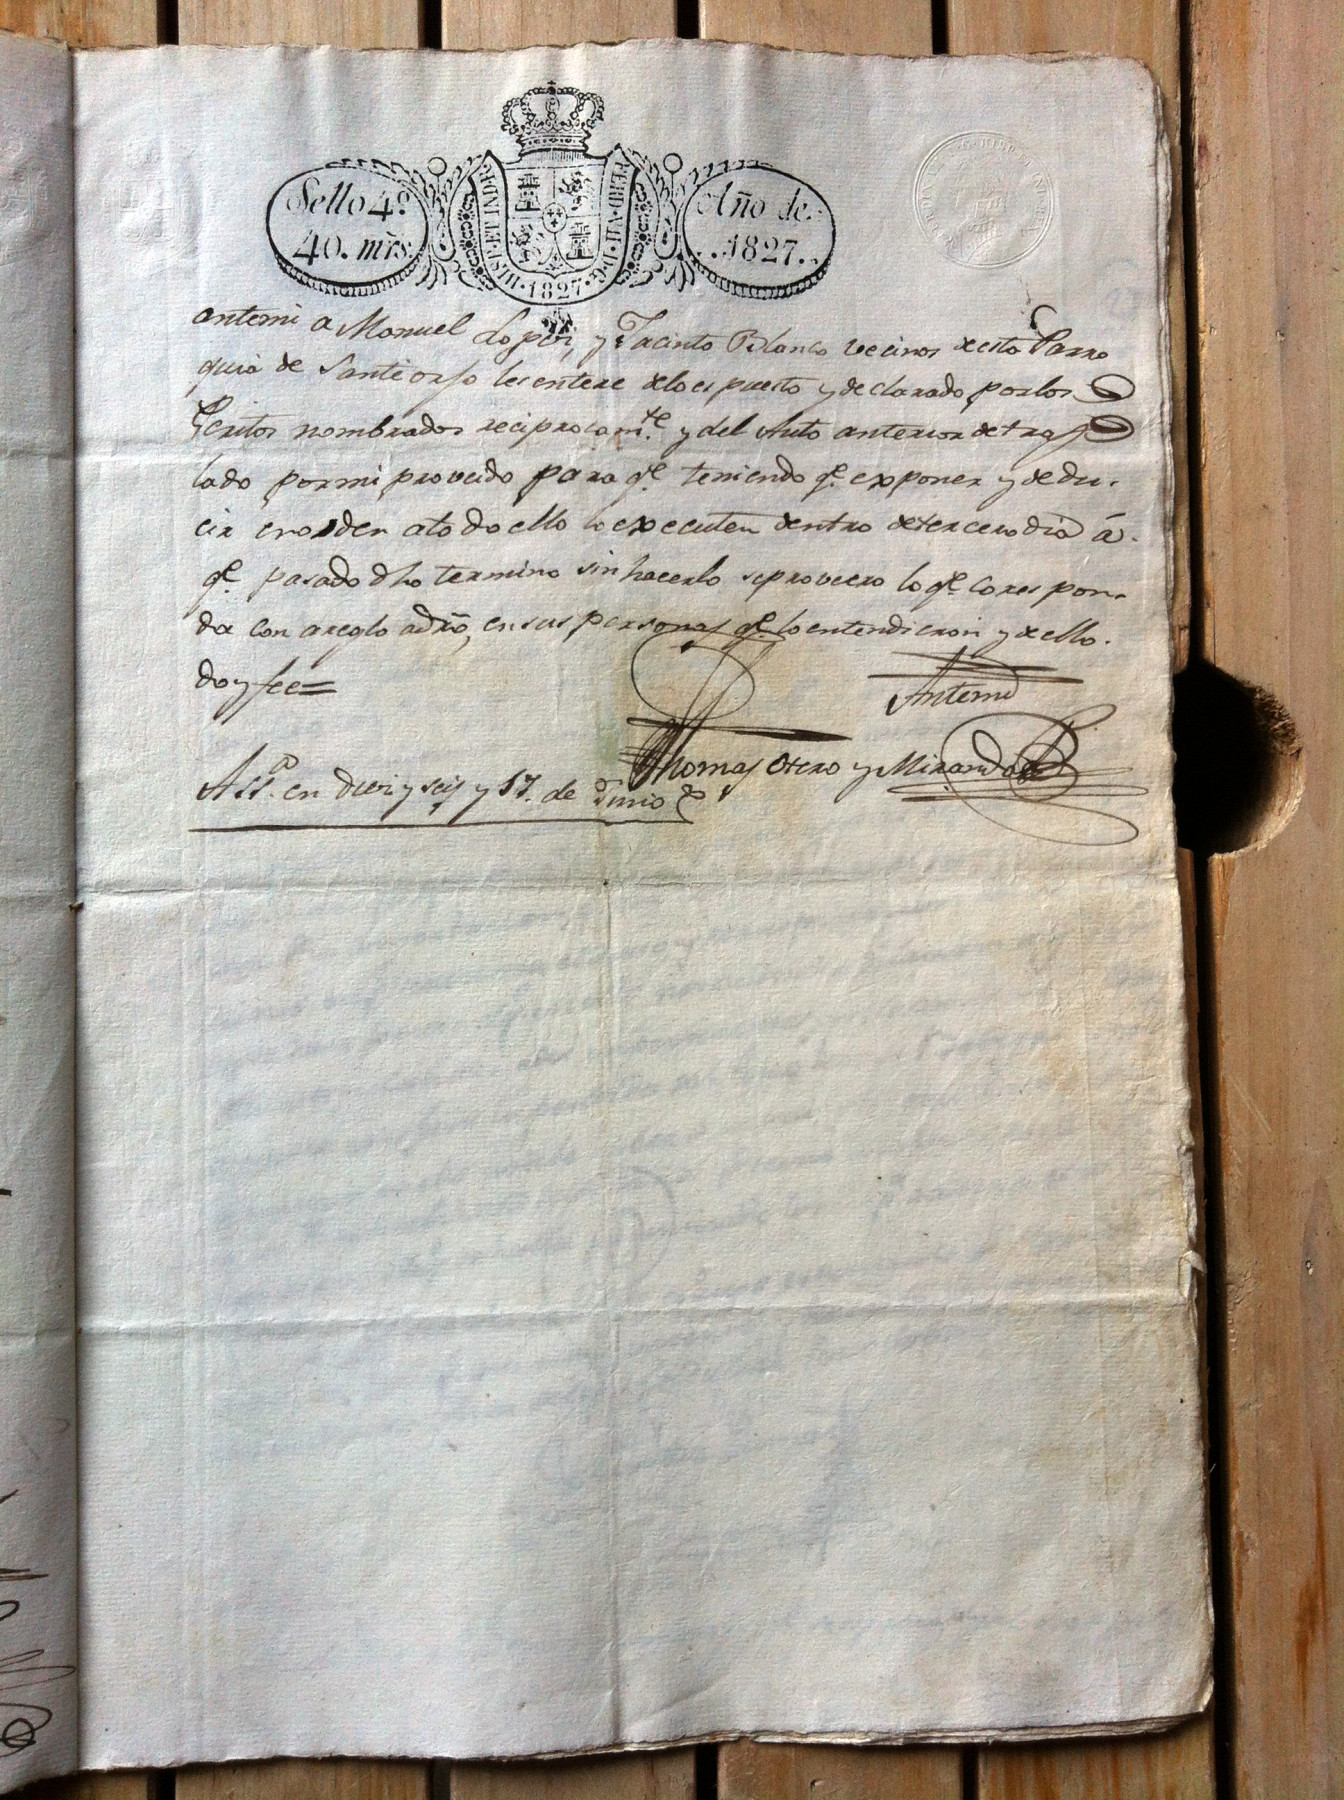 Sello 4º
40. mrs.
HISP. ET IND. R.
FERD. VII. D. G.
1827.
Año de
1827.
antemi a Manuel Lopez, y Jacinto Blanco vecinos de esta Parro
quia de Santiorjo les entere delo es puesto y declarado, por los
Peritos nombrados reciprocamte. y del Auto anterior de tras
lado por mi proveido para qe. teniendo qe. exponer y dedu.
cir en orden a todo ello lo executen dentro de tercero dia á.
qe. pasado dho termino sin hacerlo se proveera lo qe. cores pon.
da con areglo adro, en sus personas qe. lo entendieron y de ello.
doy fee=
Antemi
Thomas Otero y Miranda
Assa. en diez y seis y 17. de Junio